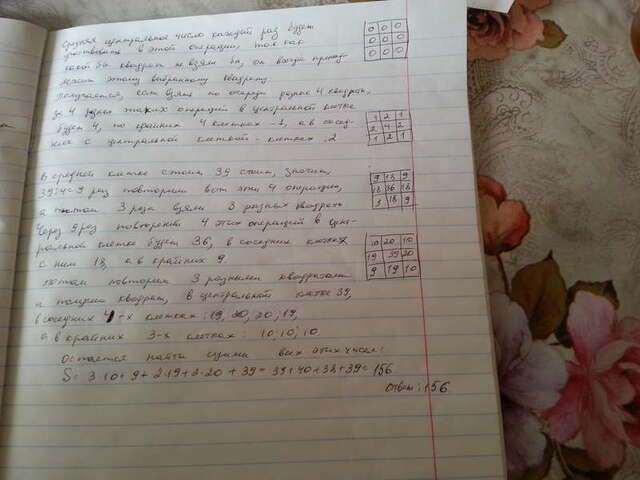 Средняя центральное число каждый раз будет
участвовать в этой операции, так как
какой бы квадрат не взяли бы, он всегда принад-
лежит этому выбранному квадрату
получается, если взять по очереди разные 4 квадрат,
за 4 таких операций в центральной клетке
будет 4, по крайних 4 клетках - 1, а в сосед-
них с центральной клеткой - клетках 2
0 0 0
0 0 0
0 0 0
1 2 1
2 4 2
1 2 1
В средней клетке стоит 39 стоит, значит,
39:4=9 раз повторили вот эти 4 операции,
а потом 3 раза взяли 3 разных квадрата
Через 9 раз повторений 4 этих операций в цент-
ральной клетке будет 36, в соседних клетках
с ним 18, а в крайних 9.
потом повторим 3 разными квадратами
и получим квадрат, в центральной клетке 39,
в соседних 4-х клетках: 19, 20, 20, 19,
а в крайних 3-х клетках: 10, 10, 10
9 18 9
18 36 18
9 18 9
10 20 10
19 39 20
9 19 10
Остается найти сумму всех этих чисел:
S= 3·10+9+2·19+2·20+39=39+40+38+39=156
Ответ: 156